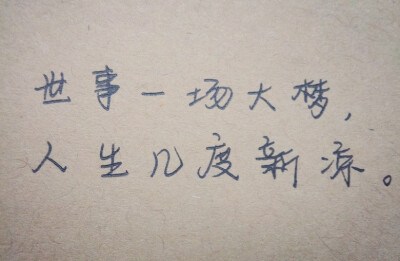 世事一场大梦，
人生几度新凉。